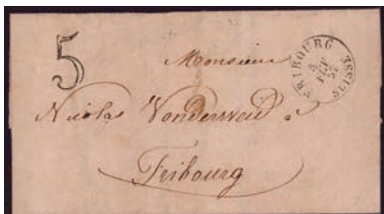 5
FRIBOURG
SUISSE
Monsieur
Nicolas Vonderweid
Feibourg